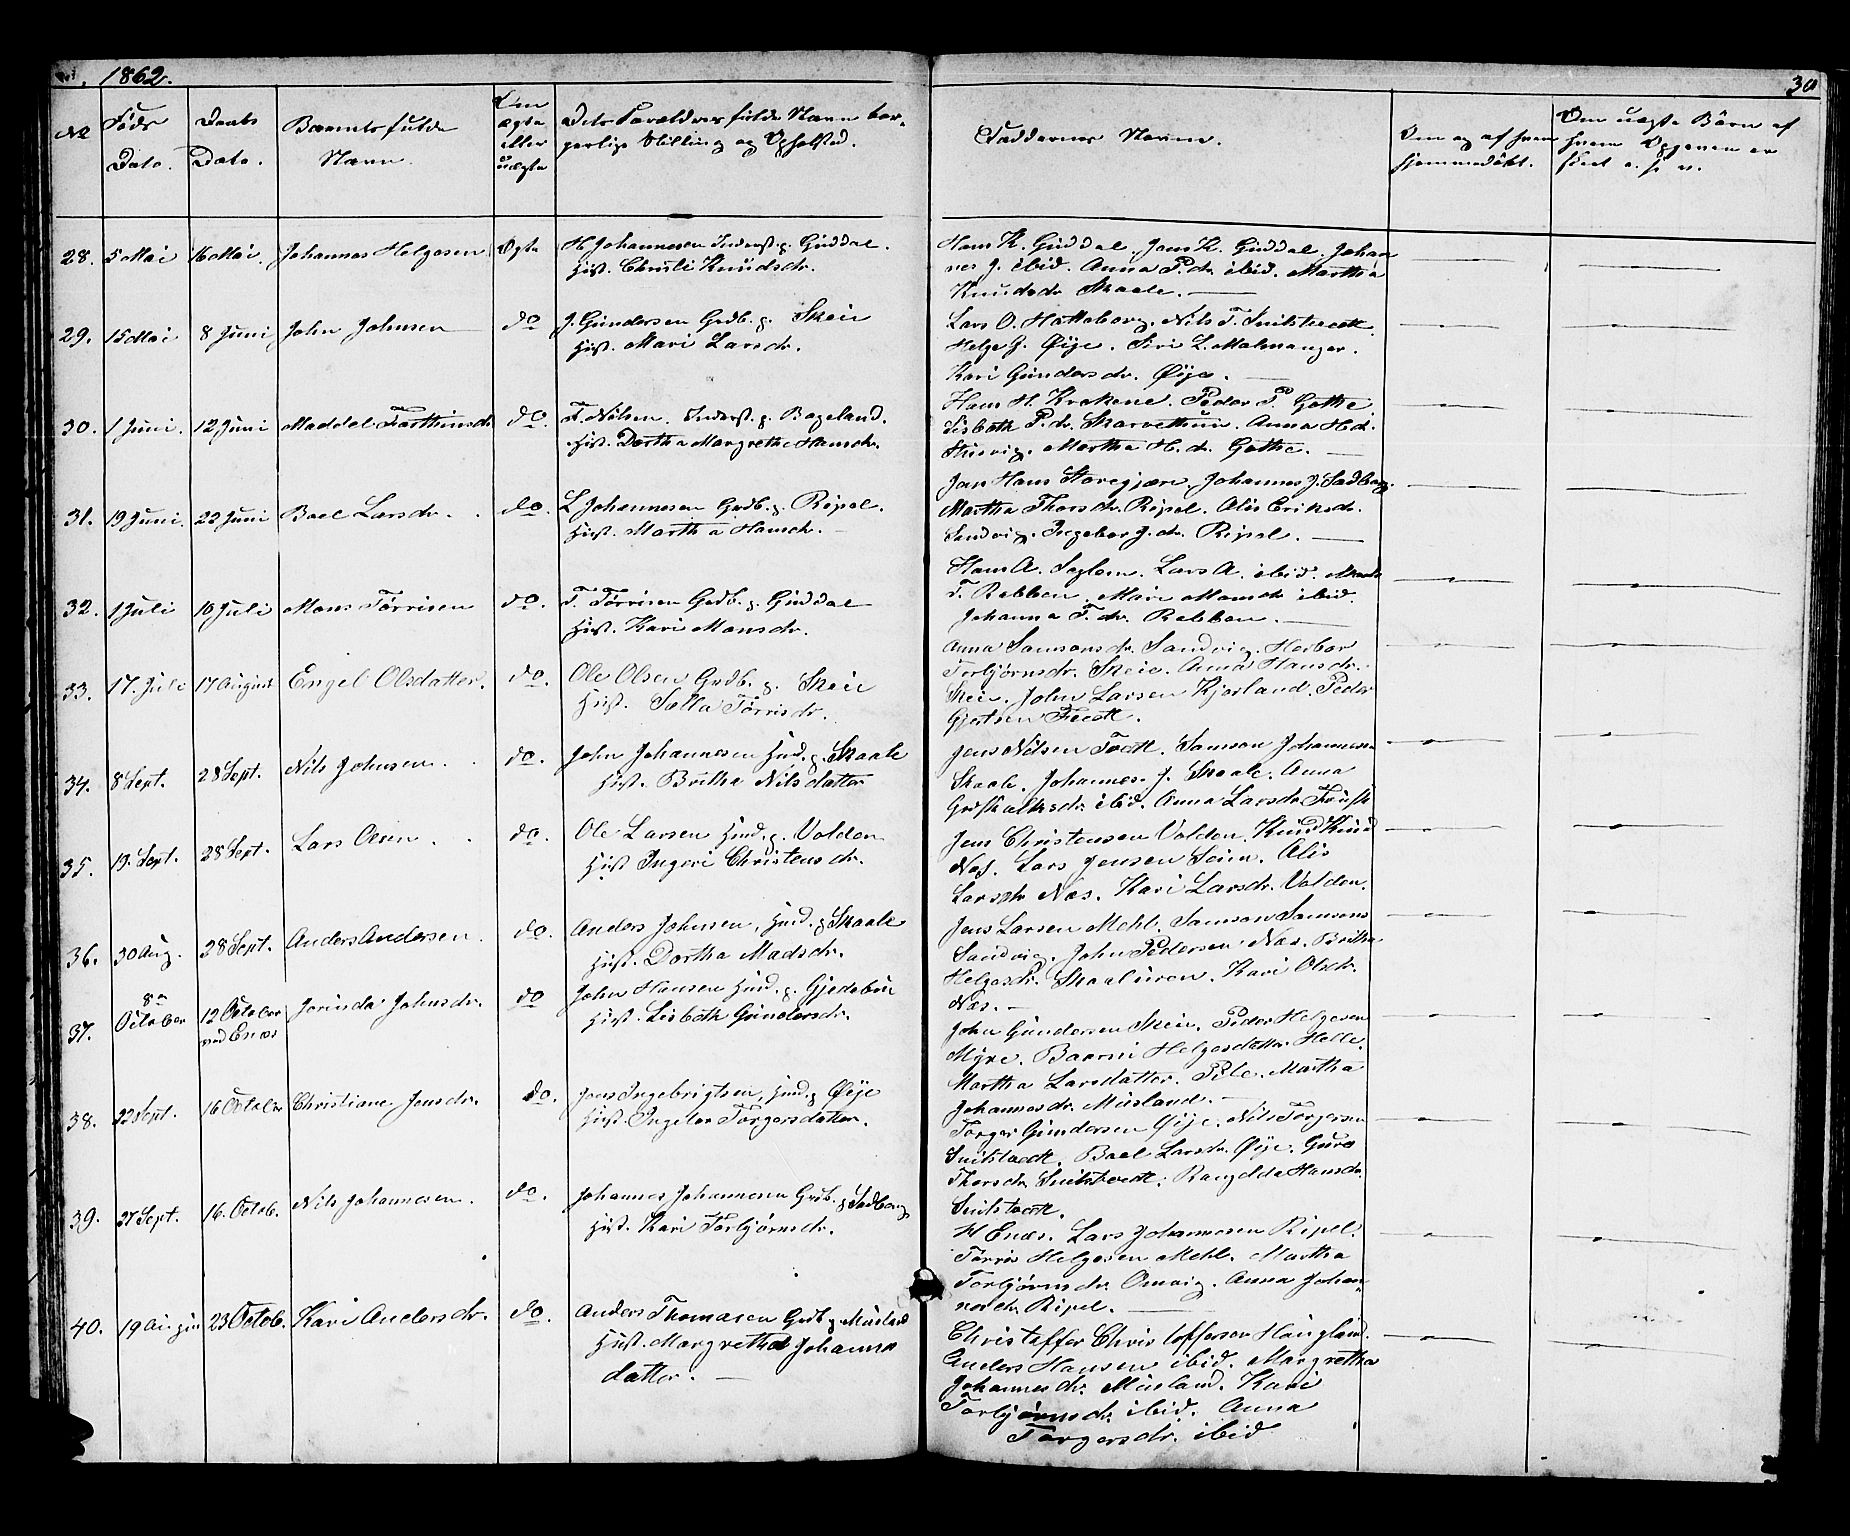 1862.
30
No
Føds Dato.
Daabs Dato.
Barnets fulde Navn.
Om ægte eller uægte
Dets Forældres fulde Navn bor-
gerlige Stilling og Opholdssted.
Faddernes Navne.
Om og af hvem hjemmedøbt.
Om uægte Børn af hvem Opgaven er
28. 5 Mai 16 Mai. Johannes Helgesen Ægte H. Johannesen Inderst. g. Guddal.
Hust. Christi Knudsdr.
Hans K. Guddal. Jens K. Guddal. Johan
nes J. ibid. Anna P.dr. ibid. Martha
Knudsdr. Skaale.
29. 15 Mai 8 Juni John Johnsen do J. Gundersen Grdb. g. Skeie
Hust. Mari Larsdr.
Lars O. Hatteberg. Nils T. Snilstvedt.
Helge G. Øije. Siri L. Malmanger.
Kari Gundersdr. Øije.
30. 1 Juni. 12 Juni Maddel do. T. Nilsen. Inderst. g. Bogeland.
Hust. Dorthea Margrethe Hansdr.
Hans H. Krokene. Peder P. Gothe
Lisbeth P.dr. Skarvethun. Anna H.d.
Martha H. dr. Gothe.
31. 19 Juni. 22 Juni Bael Larsdr. do. L Johannesen Grdb. g. Ripel.
Hust. Martha Hansdr.
Jan Hans Storegjære. Johannes J. Sadberg.
Martha Thorsdr. Ripel. Alis Eriksdr.
Sandvig. Ingebor J. dr. Ripel.
32. 1 Juli 10 Juli Mons Tørrisen do. T. Tørrisen Grdb. g. Guddal
Hust. Kari Monsdr.
Hans A. Seglem. Lars A. ibid.
T. Rebben. Mari Monsdr ibid.
Johanna T. dr. Rebben.
33. 17. Juli 17 August Engel Olsdatter. do. Ole Olsen Grdb. g. Skeie
Hust. Salla Tørrisdr.
Anna Samsonsdr. Sandvig. Herbor
Torbjørnsdr. Skeie. Anna Hansdr.
Skeie. John Larsen Kjerland. Peder
Gjertsen
34. 8 Sept. 28 Sept. Nils Johnsen. do. John Johannesen Husd. g. Skaale
Hust. Britha Nilsdatter
Jens Nilsen Tvedt. Samson Johannesen
Skaale. Johannes J. Skaale. Anna
Godskalksdr. ibid. Anna Larsdr.
35. 19. Sept. 28 Sept. Lars Olsen. do. Ole Larsen Husd. g. Valden
Hust Ingeri Christensdr.
Jens Christensen Valden. Knud Knud
Næs. Lars Jensen Seim. Alis
Larsdr Næs. Kari Larsdr. Valden.
36. 30 Aug. 28 Sept. Anders Andersen. do. Anders Johnsen, Husd. g Skaale
Hust. Dorthea Madsdr.
Jens Larsen Mehl. Samson Samsons
Sandvig. John Pedersen Næs. Britha
Helgesdr. Skaaluren. Kari Olsdr.
Næs.
37. 8de October 12 October ved Enæs Jorinda Johnsdr. do John Hansen Husd. g. Gjedebøe
Hust. Lisbeth Gundersdr.
John Gundersen Skeie. Peder Helgesen
Myre. Baarni Helgesdatter. Helle.
Martha Larsdatter. Pile. Martha
Johannesdr. Musland.
38. 22 Sept. 16 October Christiane Jensdr. do. Jens Ingebrigtsen, Husd. g Øije
Hust. Ingebor Torgersdatter.
Torger Gundersen Øije. Nils Torgersen
Snilstvedt. Bael Larsdr. Øije. Guro
Thorsdr Snilstvedt. Rangdla Hansdr.
Snilstvedt.
39. 27 Sept. 16. Octob. Nils Johannesen. do. Johannes Johannesen Grdb. g Sadberg
Hust. Kari Torbjørnsdr.
H Enæs. Lars Johannesen Ripel.
Tørris Helgesen Mehl. Martha
Torbjørnsdr. Omvig. Anna Johan-
nesdr. Ripel.
40. 19 August 23 Octob. Kari Andersdr. do. Anders Thomasen Grdb g Musland
Hust. Margretha Johannes
datter.
Christoffer Christofferson Haugland.
Anders Hansen ibid. Margretha
Johannesdr. Musland. Kari
Torbjørnsdr. ibid. Anna
Torgersdr. ibid